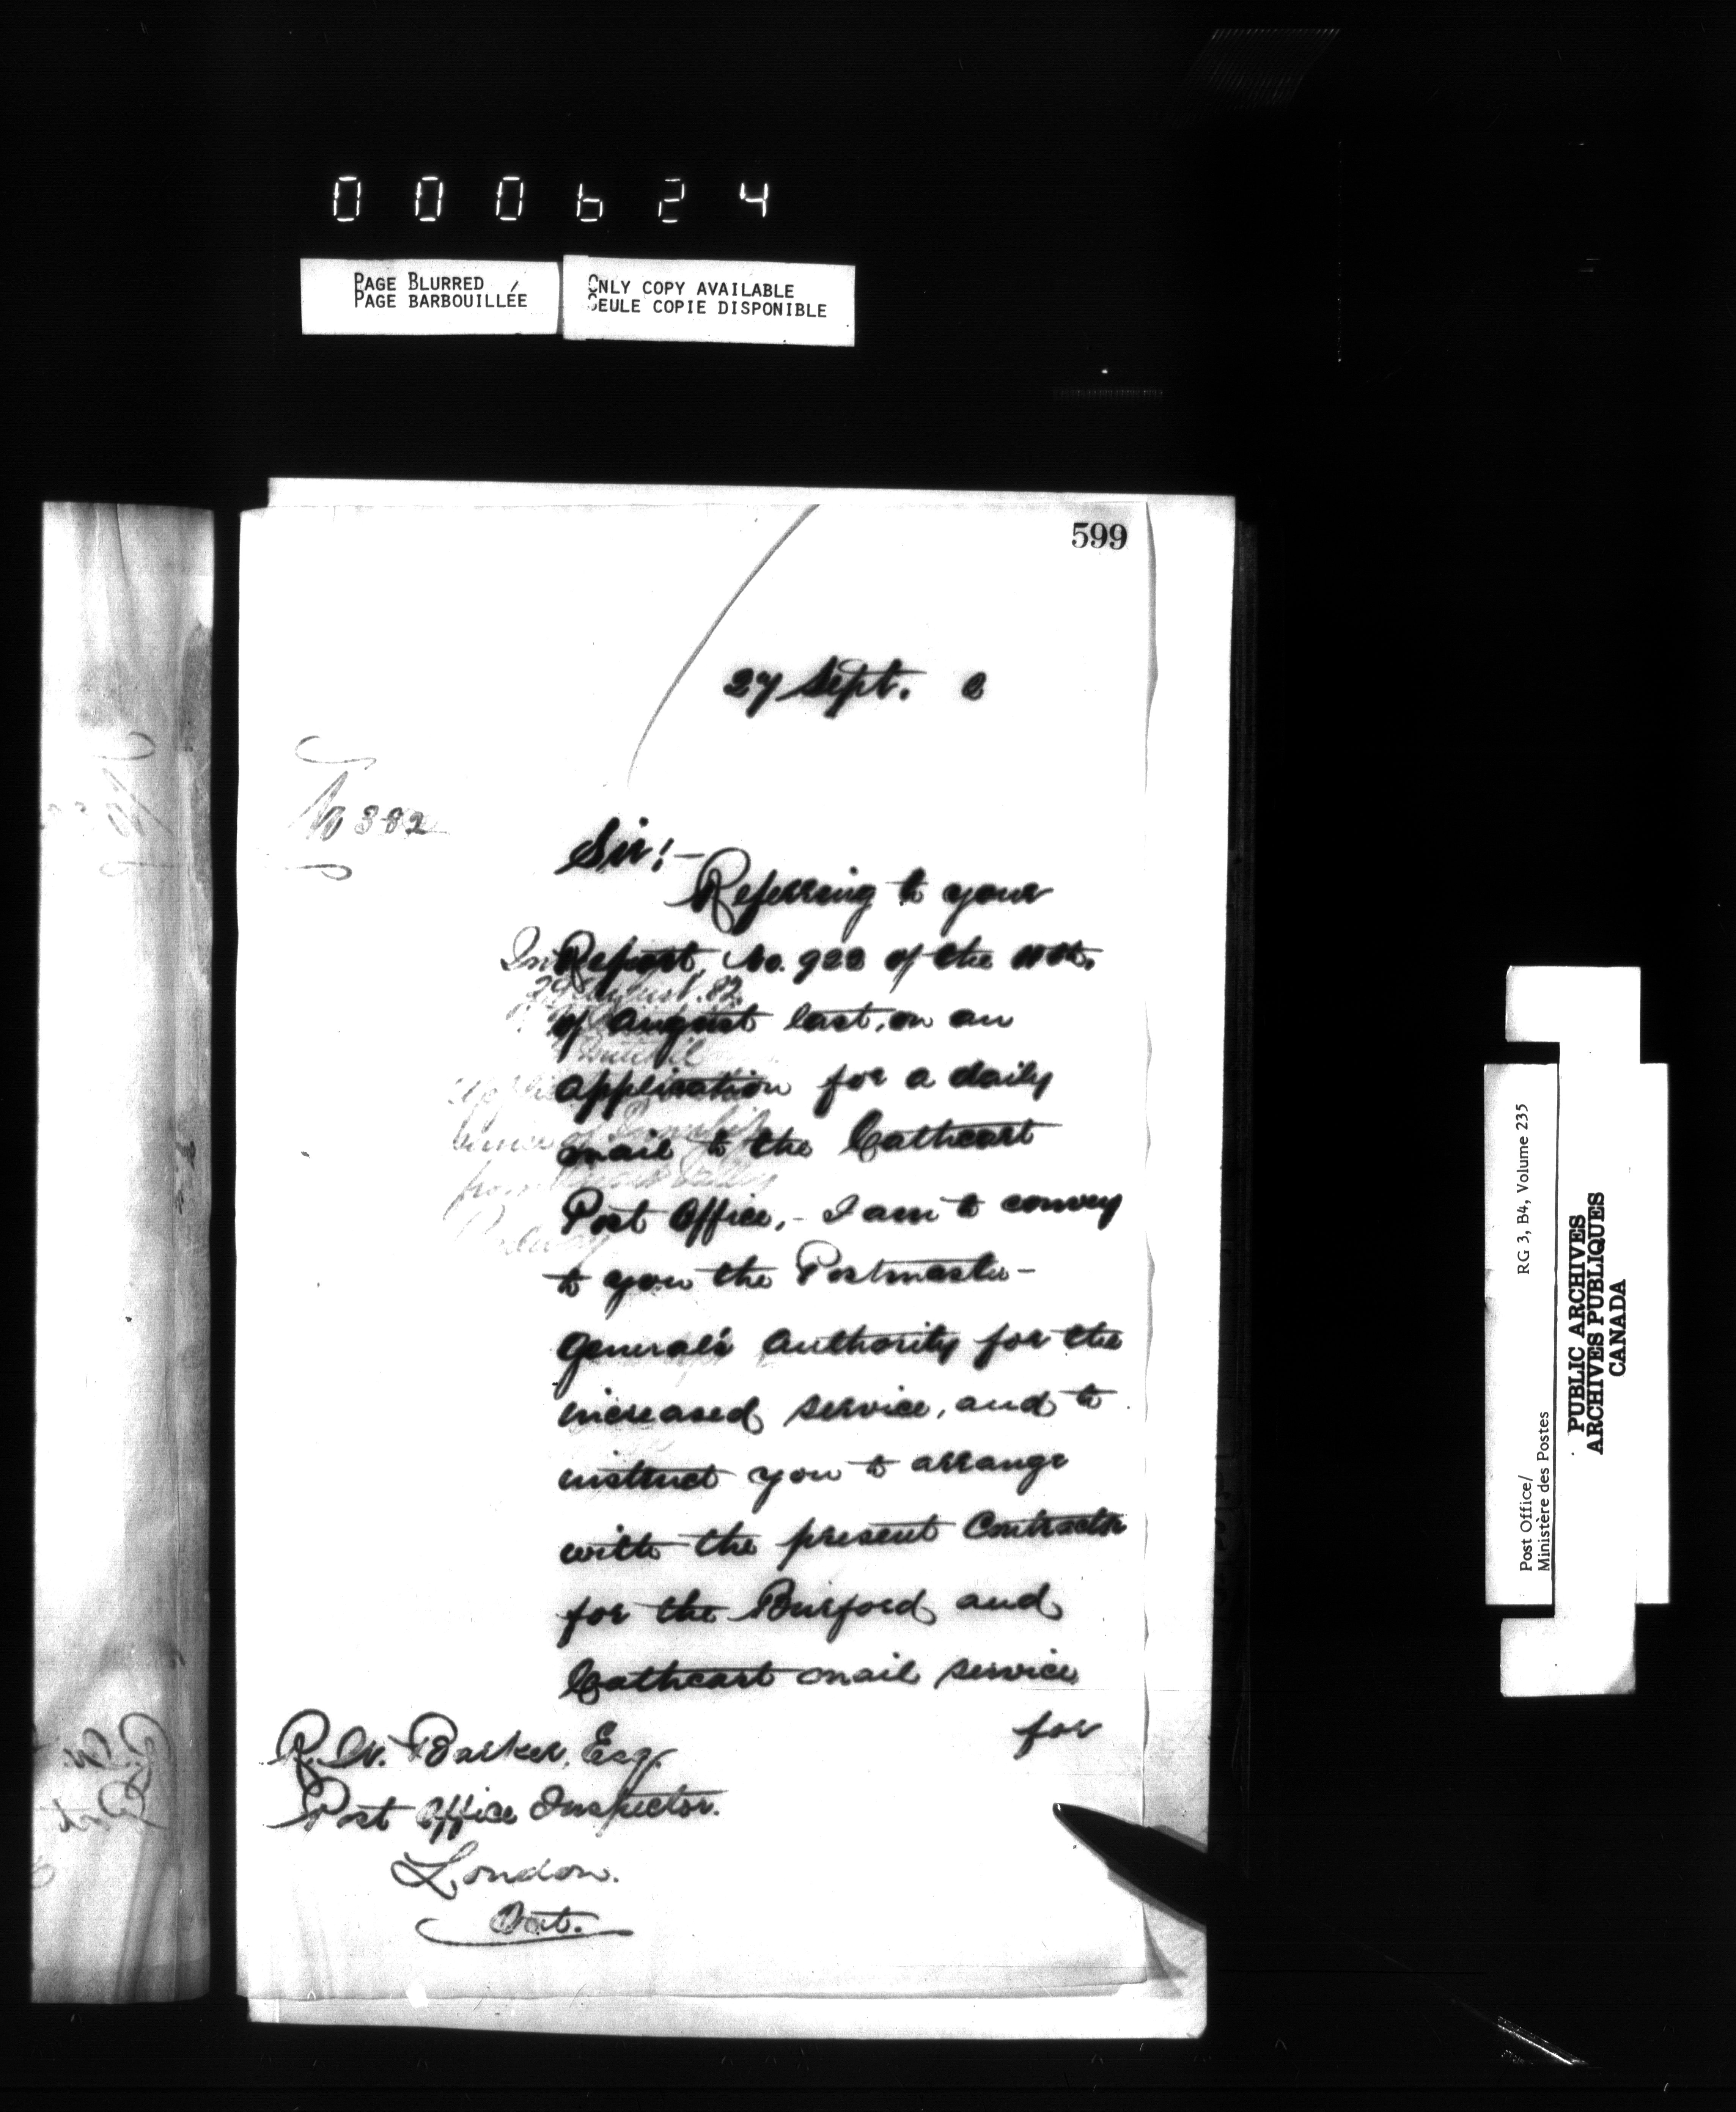 000624
PAGE BLURRED
PAGE BARBOUILLÉE
ONLY COPY AVAILABLE
SEULE COPIE DISPONIBLE
599
27 Sept. 2
No 382
Sir!-
Referring to your
Report, No. 922 of the 11th.
of August last, on an
application for a daily
mail to the Cathcart
Post Office,- I am to convey
to you the Postmaster-
General's Authority for the
increased service, and to
instruct you to arrange
with the present Contractor
for the Burford and
Cathcart mail service
for
R. W. Barker, Esq.
Post Office Inspector.
London.
Ont.
29 August. 82.
from
Railway
Post Office/
Ministère des Postes
RG 3, B4, Volume 235
PUBLIC ARCHIVES
ARCHIVES PUBLIQUES
CANADA